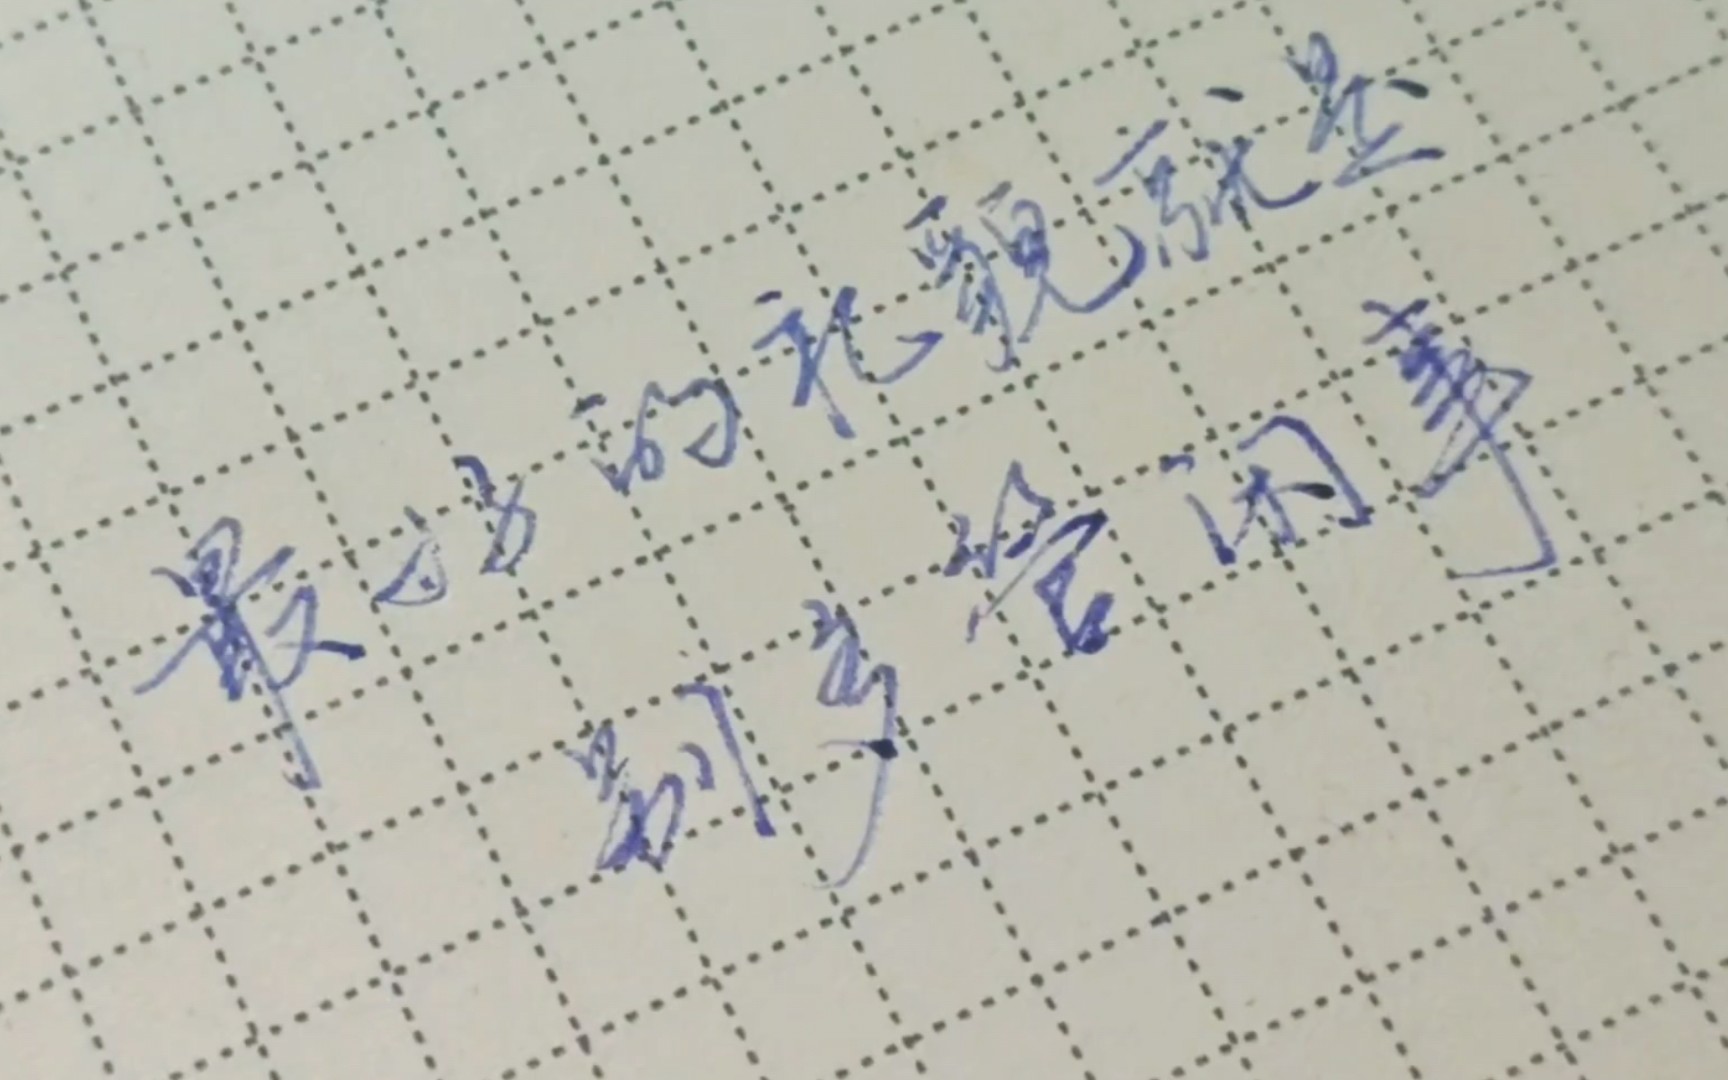 最好的礼貌就是
别多管闲事